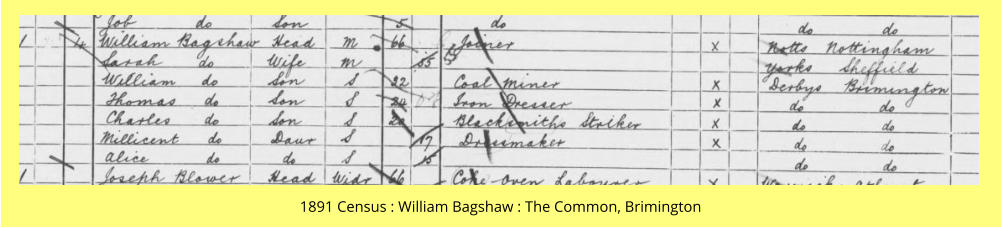 Job do Son 5 do do do
1 4 William Bagshaw Head M 66 Joiner X Notts Nottingham
Sarah do Wife M 55 Yorks Sheffield
William do Son S 22 Coal Miner X Derbys Brimington
Thomas do Son S Iron Dresser X do do
Charles do Son S Blacksmiths Striker X do do
Millicent do Daur S 17 Dressmaker X do do
Alice do do S 15 do do
1 Joseph Blower Head Widr 66 Coke Oven Labourer X
1891 Census : William Bagshaw : The Common, Brimington